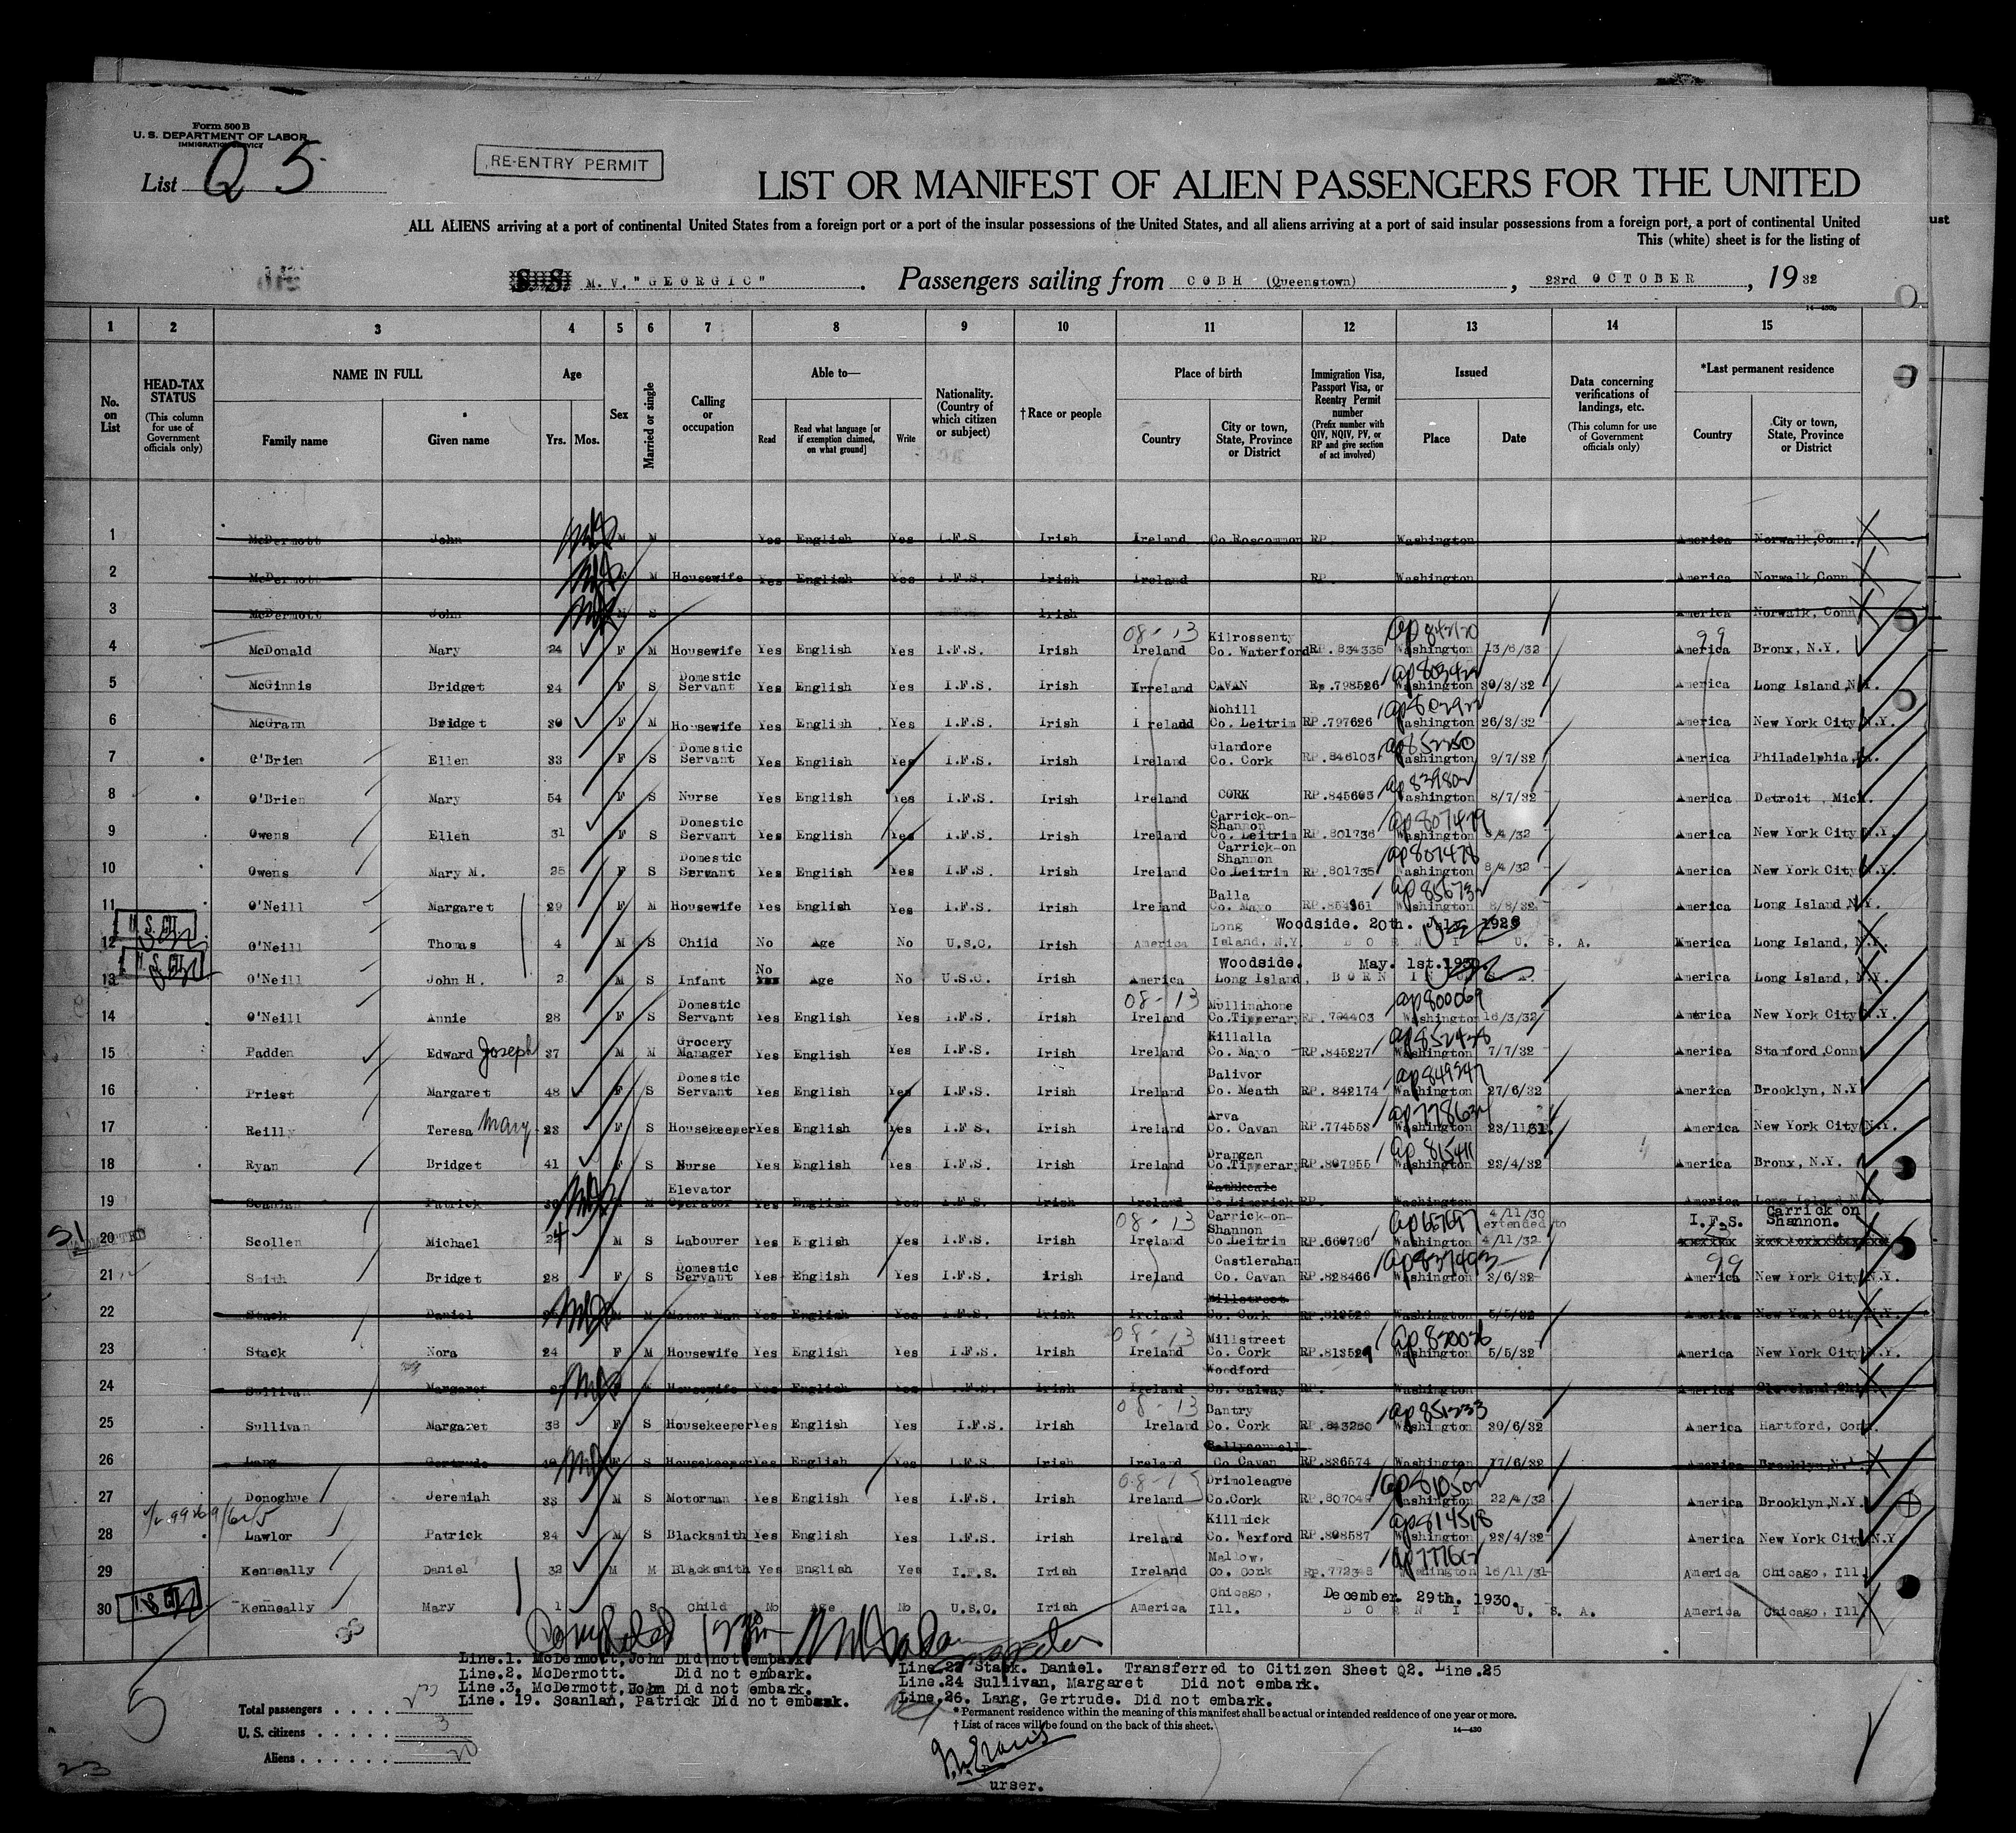 Form 500 B
U. S. DEPARTMENT OF LABOR
IMMIGRATION SERVICE
List Q 5
RE-ENTRY PERMIT
LIST OR MANIFEST OF ALIEN PASSENGERS FOR THE UNITED
ALL ALIENS arriving at a port of continental United States from a foreign port or a port of the insular possessions of the United States, and all aliens arriving at a port of said insular possessions from a foreign port, a port of continental United
This (white) sheet is for the listing of
ust
S. S. M. V. "GEORGIC". Passengers sailing from COBH (Queenstown), 23rd OCTOBER, 19 32
1 2 3 4 5 6 7 8 9 10 11 12 13 14 15
No. on List
HEAD-TAX STATUS (This column for use of Government officials only)
NAME IN FULL Family name Given name
Age Yrs. Mos.
Sex
Married or single
Calling or occupation
Able to— Read Read what language [or if exemption claimed, on what ground] Write
Nationality. (Country of which citizen or subject)
†Race or people
Place of birth Country City or town, State, Province or District
Immigration Visa, Passport Visa, or Reentry Permit number (Prefix number with QIV, NQIV, PV, or RP and give section of act involved)
Issued Place Date
Data concerning verifications of landings, etc. (This column for use of Government officials only)
*Last permanent residence Country City or town, State, Province or District
1 McDermott John M M Yes English Yes I.F.S. Irish Ireland Co Roscommon RP Washington America Norwalk, Conn.
2 McDermott M Housewife Yes English Yes I.F.S. Irish Ireland RP Washington America Norwalk, Conn
3 McDermott John M S Irish America Norwalk, Conn
4 McDonald Mary 24 F M Housewife Yes English Yes I.F.S. Irish 08-13 Ireland Kilrossenty Co. Waterford RP. 834335 Washington 13/6/32 99 America Bronx, N.Y.
5 McGinnis Bridget 24 F S Domestic Servant Yes English Yes I.F.S. Irish Irreland CAVAN Rp.798526 Washington 30/3/32 America Long Island, N.Y.
6 McGrann Bridget 30 F M Housewife Yes English Yes I.F.S. Irish Ireladd Mohill Co. Leitrim RP.797626 Washington 26/3/32 America New York City, N.Y.
7 O'Brien Ellen 33 F S Domestic Servant Yes English Yes I.F.S. Irish Ireland Glandore Co. Cork RP.846103 Washington 9/7/32 America Philadelphia, Pa.
8 O'Brien Mary 54 F S Nurse Yes English Yes I.F.S. Irish Ireland CORK RP.845603 Washington 8/7/32 America Detroit, Mich.
9 Owens Ellen 31 F S Domestic Servant Yes English Yes I.F.S. Irish Ireland Carrick-on-Shannon Co. Leitrim RP.801736 Washington 8/4/32 America New York City N.Y.
10 Owens Mary M. 25 F S Domestic Servant Yes English Yes I.F.S. Irish Ireland Carrick-on Shannon Co Leitrim RP.801735 Washington 8/4/32 America New York City N.Y.
11 O'Neill Margaret 29 F M Housewife Yes English Yes I.F.S. Irish Ireland Balla Co. Mayo Washington 8/8/32 America Long Island, N.Y.
12 O'Neill Thomas 4 M S Child No Age No U.S.C. Irish America Long Island, N.Y. Woodside. 20th. BORN IN U. S. A. America Long Island, N.Y.
13 O'Neill John H. 2 M S Infant No Age No U.S.C. Irish America Woodside. Long Island, May. 1st. BORN IN U. S. A. America Long Island, N.Y.
14 O'Neill Annie 28 F S Domestic Servant Yes English Yes I.F.S. Irish 08-13 Ireland Mullinahone Co. Tipperary RP.794403 Washington 16/3/32 America New York City N.Y.
15 Padden Edward Joseph 37 M M Grocery Manager Yes English Yes I.F.S. Irish Ireland Killalla Co. Mayo RP.845227 Washington 7/7/32 America Stamford, Conn
16 Priest Margaret 48 F S Domestic Servant Yes English Yes I.F.S. Irish Ireland Balivor Co. Meath RP. 842174 Washington 27/6/32 America Brooklyn, N.Y
17 Reilly Teresa Mary 23 F S Housekeeper Yes English Yes I.F.S. Irish Ireland Arva Co. Cavan RP.774553 Washington 23/11/31. America New York City N.Y.
18 Ryan Bridget 41 F S Nurse Yes English Yes I.F.S. Irish Ireland Drangan Co. Tipperary RP.807955 Washington 23/4/32 America Bronx, N.Y.
19 Scanlan Patrick M Elevator Operator Yes English Yes I.F.S. Irish Ireland Rathkeale Co. Limerick RP. Washington America Long Island N.Y.
20 Scollen Michael 24 M S Labourer Yes English Yes I.F.S. Irish 08-13 Ireland Carrick-on-Shannon Co Leitrim RP.660796 Washington 4/11/30 extended to 4/11/32 I.F.S. Carrick on Shannon.
21 Smith Bridget 28 F S Domestic Servant Yes English Yes I.F.S. Irish Ireland Castlerahan Co. Cavan RP.828466 Washington 3/6/32 99 America New York City N.Y.
22 Stack Daniel M M Motor Man Yes English Yes I.F.S. Irish Ireland Millstreet Co. Cork Washington 5/5/32 America New York City N.Y.
23 Stack Nora 24 F M Housewife Yes English Yes I.F.S. Irish 08-13 Ireland Millstreet Co. Cork RP.813529 Washington 5/5/32 America New York City N.Y.
24 Sullivan Margaret Housewife Yes English Yes I.F.S. Irish Ireland Woodford Co. Galway RP. Washington America Cleveland, Ohio
25 Sullivan Margaret 38 F S Housekeeper Yes English Yes I.F.S. Irish 08-13 Ireland Bantry Co. Cork RP.843260 Washington 30/6/32 America Hartford, Conn.
26 Lang Gertrude F S Housekeeper Yes English Yes I.F.S. Irish Ireland Ballyconnell Co Cavan RP.836574 Washington 17/6/32 America Brooklyn, N.Y.
27 Donoghue Jeremiah 33 M S Motorman Yes English Yes I.F.S. Irish 08-13 Ireland Drimoleague Co. Cork Washington 22/4/32 America Brooklyn, N.Y.
28 Lawlor Patrick 24 M S Blacksmith Yes English Yes I.F.S. Irish Ireland Killmick Co. Wexford RP.808587 Washington 23/4/32 America New York City N.Y
29 Kenneally Daniel 32 M M Blacksmith Yes English Yes I.F.S. Irish Ireland Mallow, Co. Cork Washington 16/11/31 America Chicago, Ill.
30 Kenneally Mary 1 F S Child No Age No U.S.C. Irish America Chicago, Ill. December. 29th. 1930. BORN IN U. S. A. America Chicago, Ill
Line.1. McDermott, John Did not embark.
Line.2. McDermott. Did not embark.
Line.3. McDermott, John Did not embark.
Line. 19. Scanlan, Patrick Did not embark.
Line.22 Stack. Daniel. Transferred to Citizen Sheet Q2. Line.25
Line.24 Sullivan, Margaret Did not embark.
Line.26. Lang, Gertrude. Did not embark.
* Permanent residence within the meaning of this manifest shall be actual or intended residence of one year or more.
† List of races will be found on the back of this sheet.
14—430
Total passengers . . . . 23
U. S. citizens . . . . . . 3
Aliens . . . . . . 20
5
23
urser.